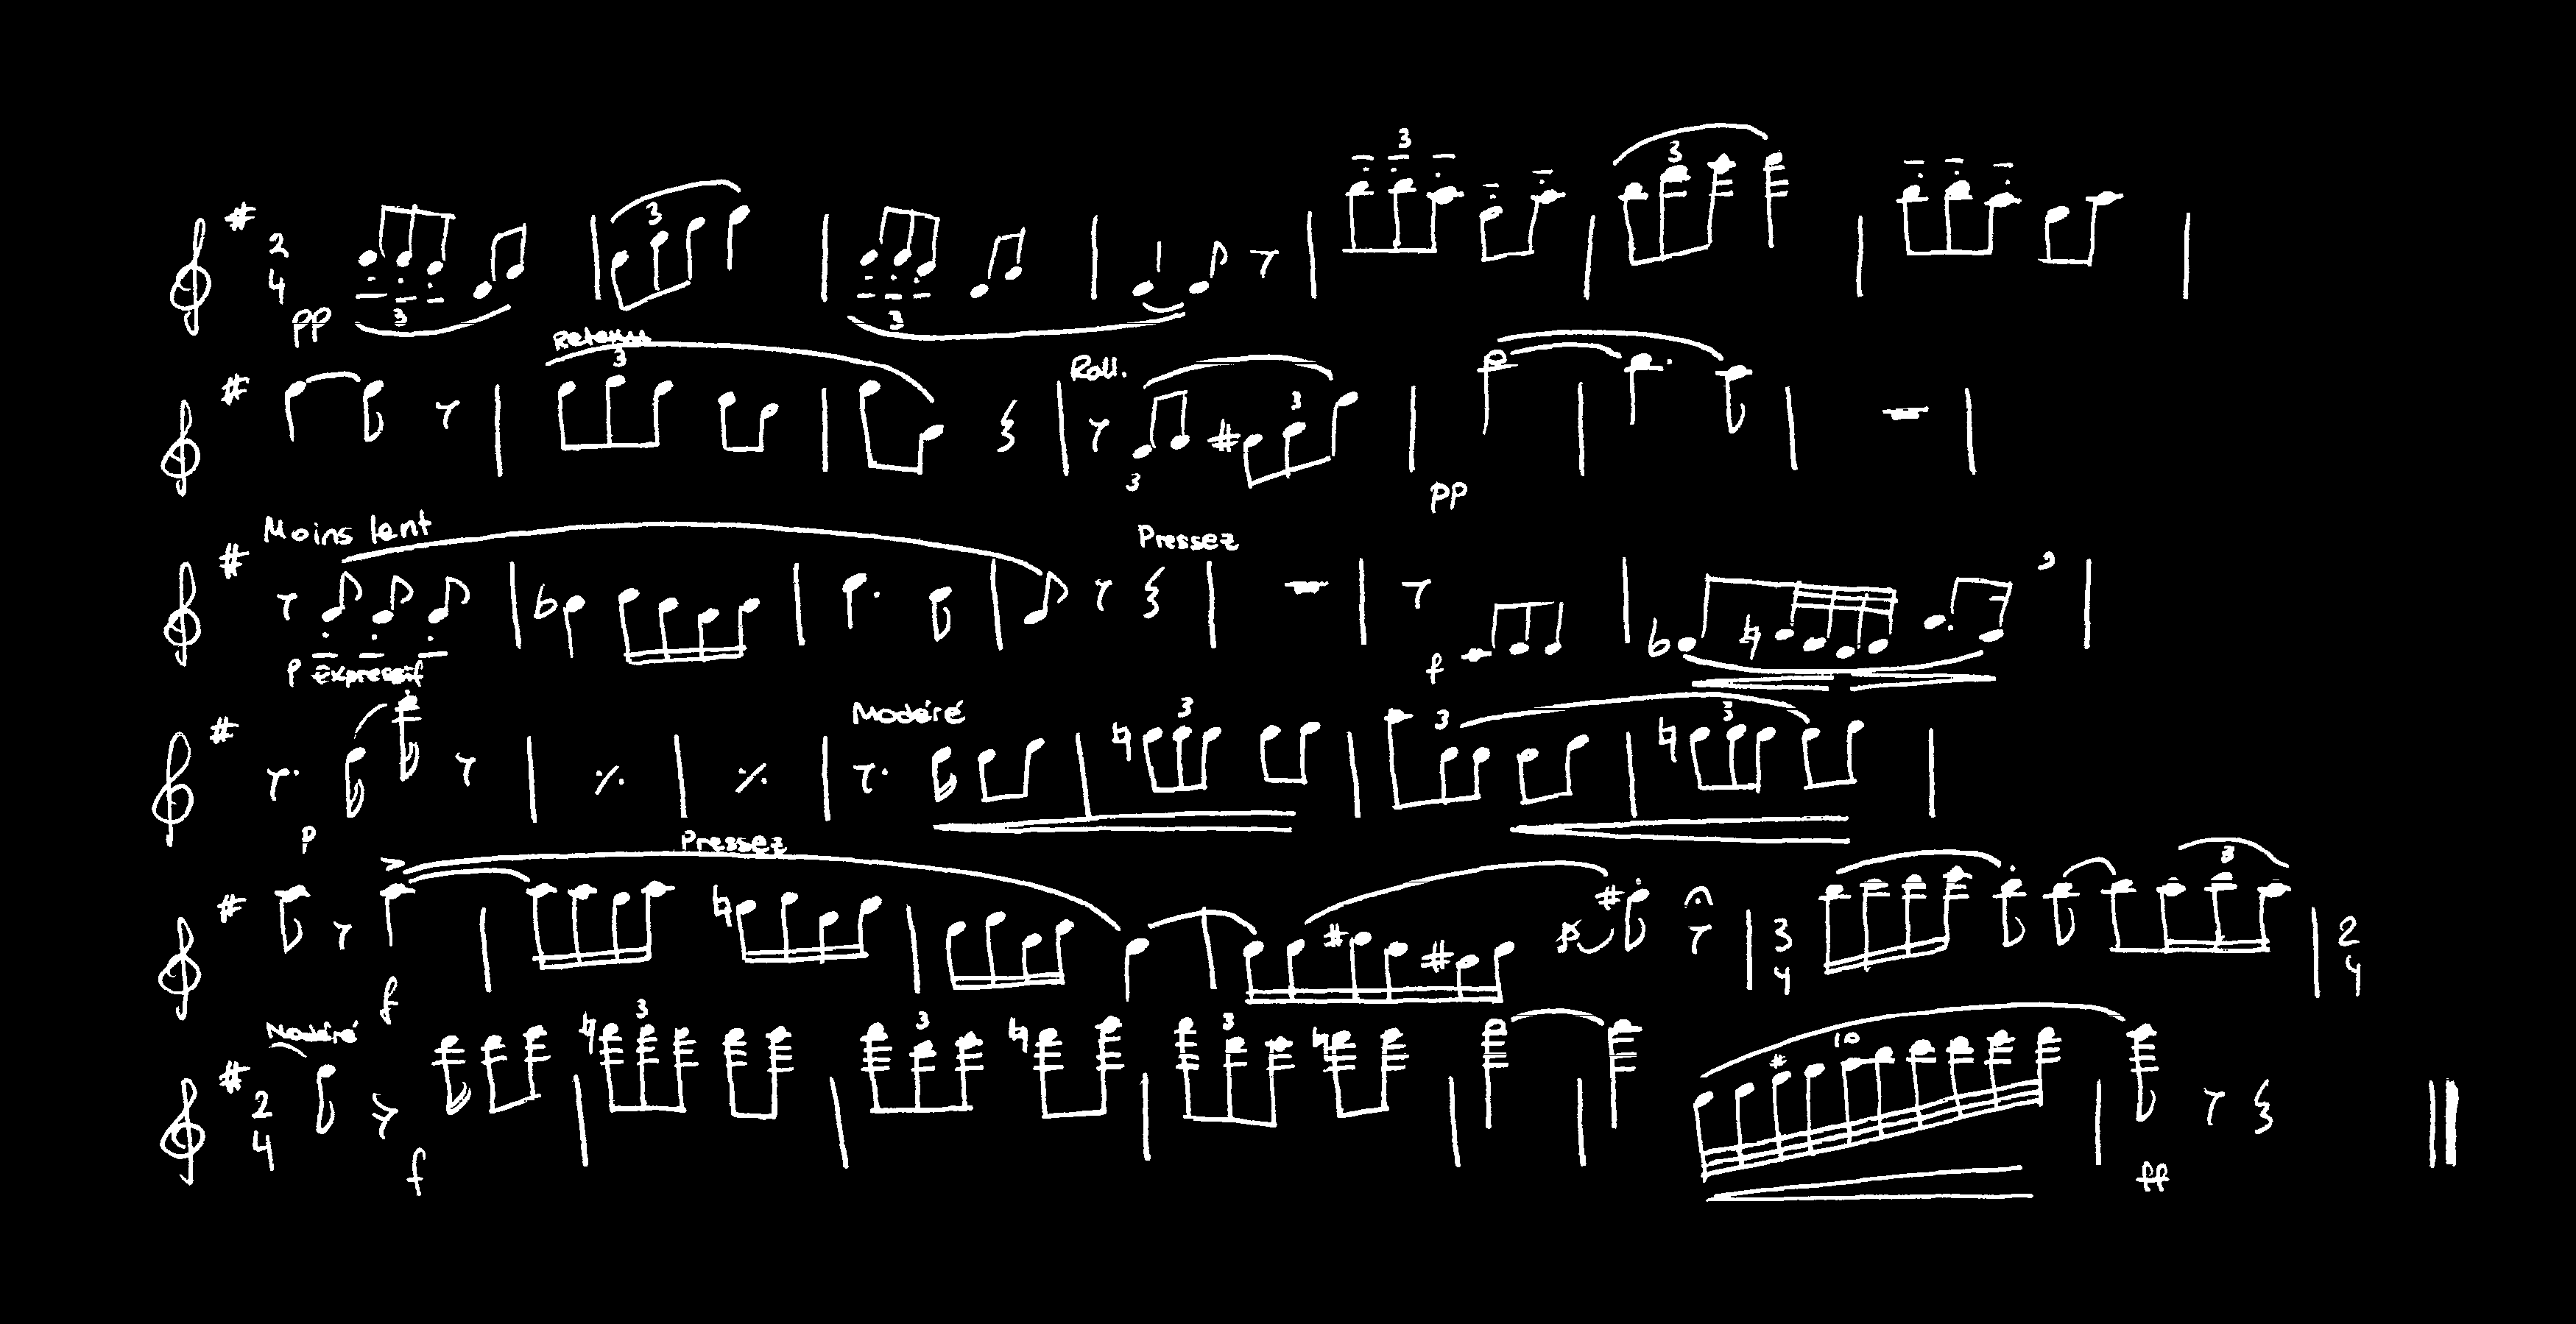 3 3 3
2 4 3
pp 3 3
Retenu 3 Rall.
3 3
pp
Moins lent Pressez
p Expressif f
Modéré 3 3 3
p
Pressez 3
3 4 2 4
f
Modéré 3 3 3 10
2 4
f ff